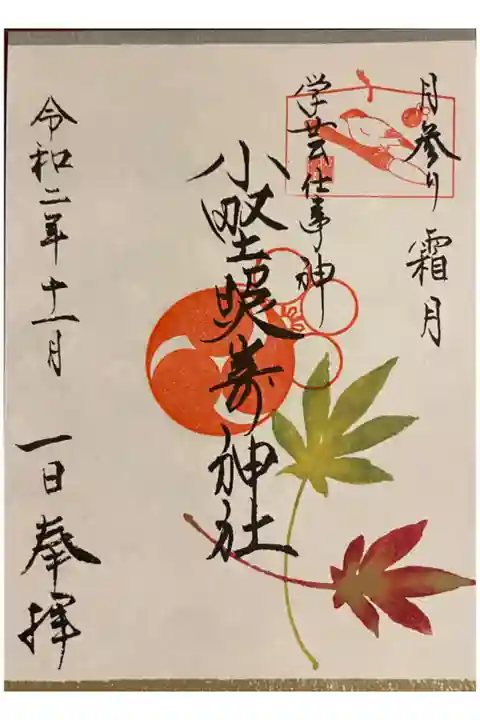 月参り 霜月
学芸仕事神
小野照嵜神社
令和二年十一月 一日奉拝